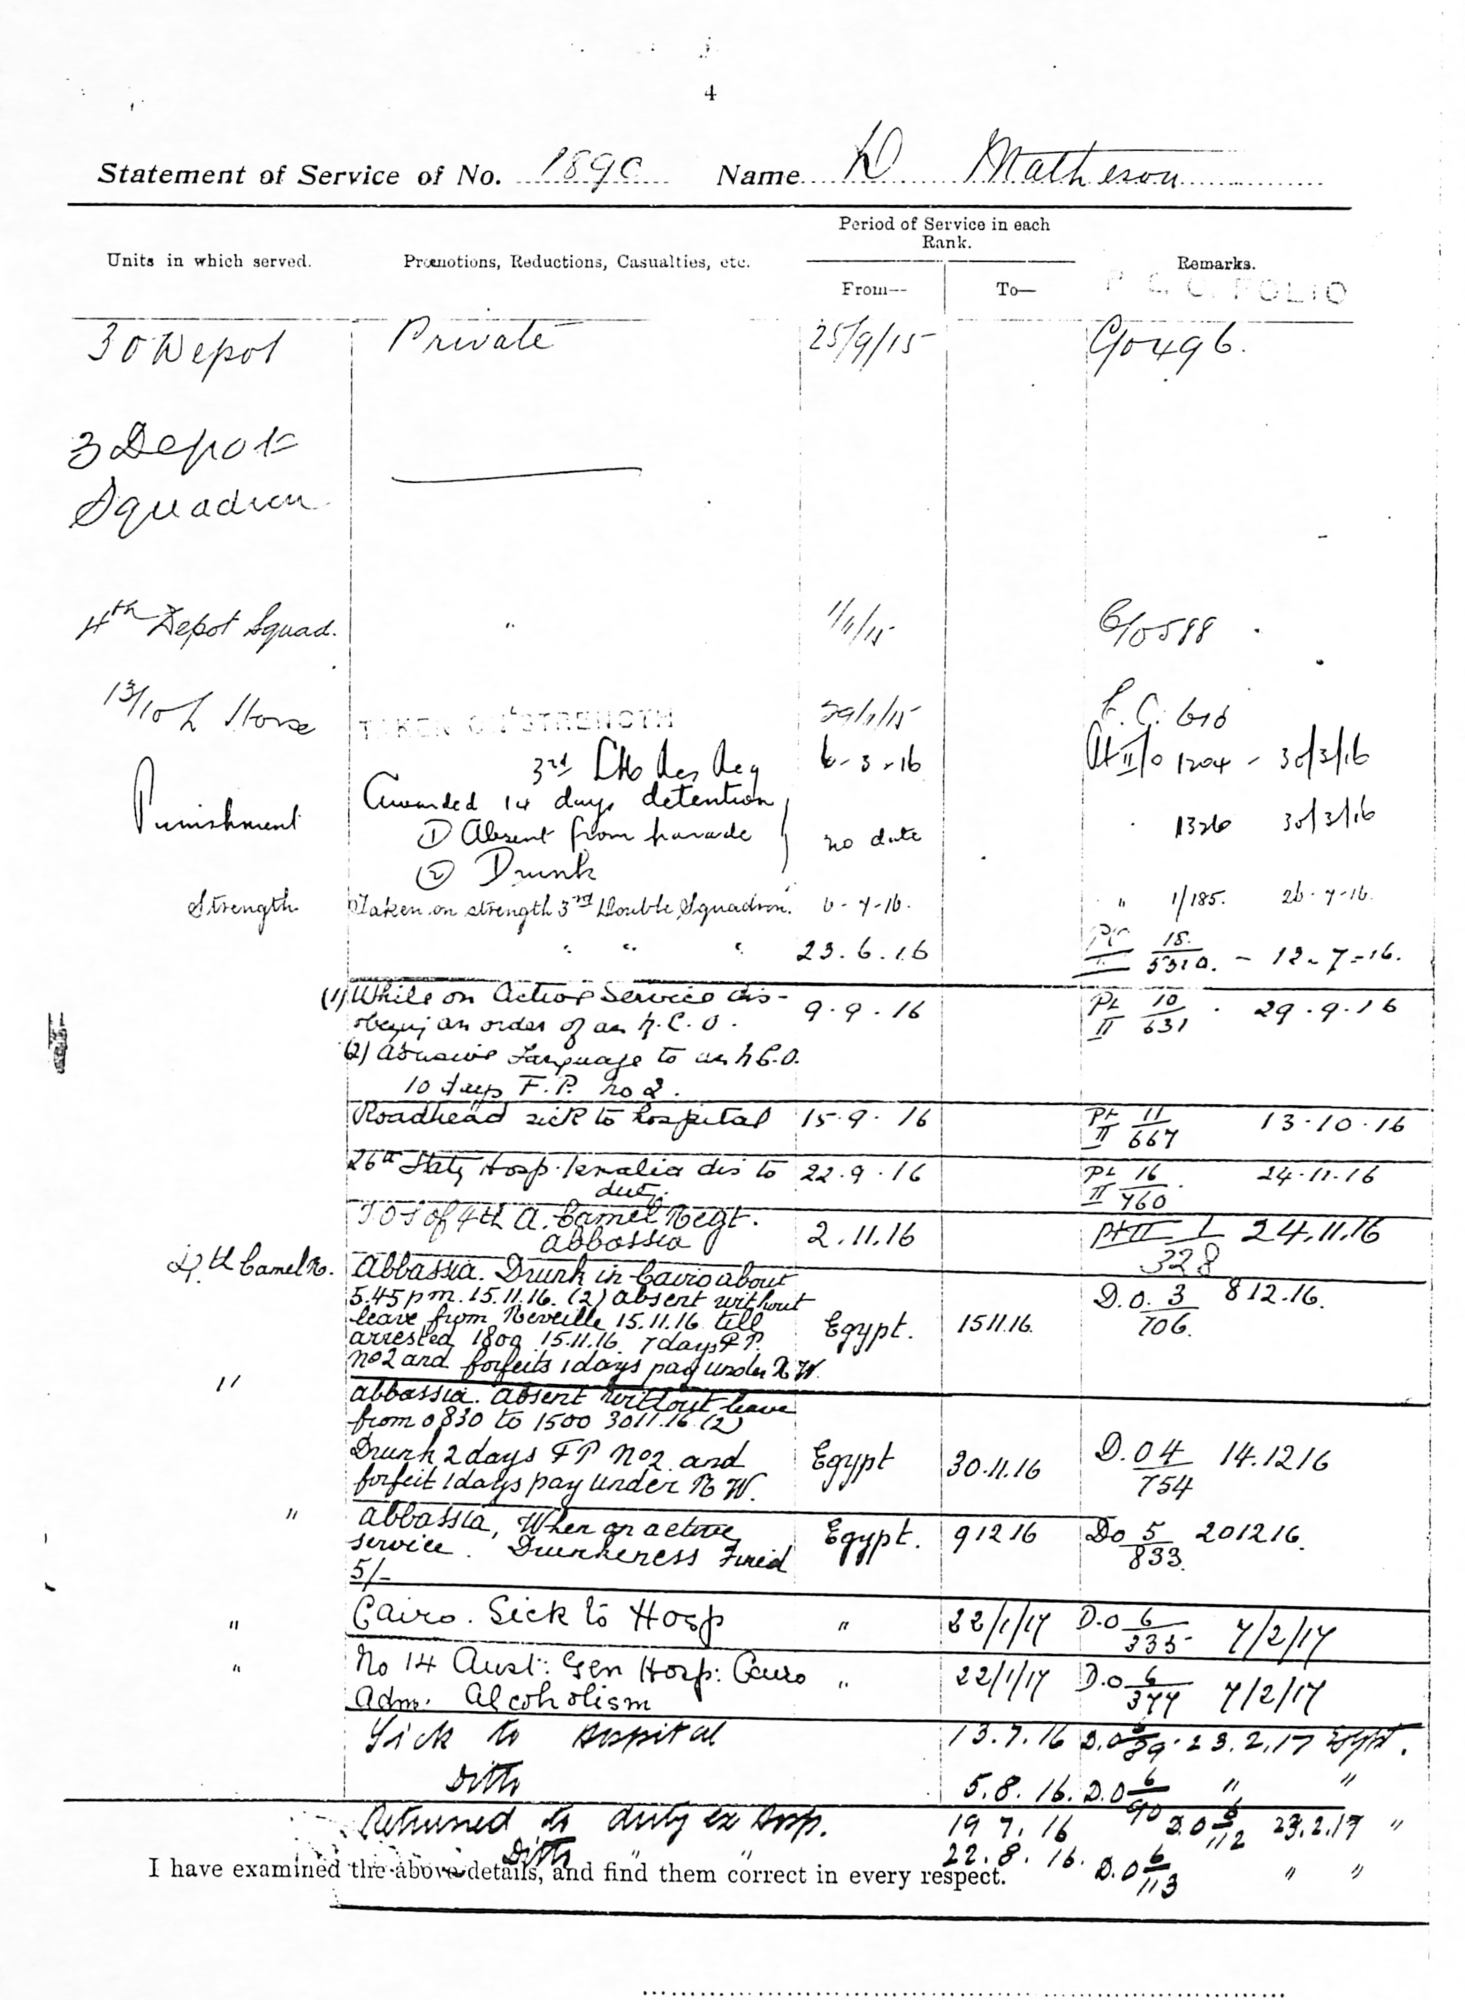 4
Statement of Service of No. 1890 Name D Matheson
Period of Service in each
Rank.
Units in which served. Promotions, Reductions, Casualties, etc. Remarks.
From— To—
P. C. O. FOLIO
30 Depot Private 25/9/15 C/0496.
3 Depot
Squadron
4th Depot Squad. " C/0588
13/10 L Horse TAKEN ON STRENGTH
3rd LH Res Reg 6-3-16 Pt II/0 1204 - 30/3/16
Punishment Awarded 14 days detention
1) Absent from parade no date " 1326 30/3/16
(2) Drunk
Strength Taken on strength 3rd Double Squadron. 6-7-16. " 1/185. 26-7-16.
" " " 23.6.16 Pt II 15/5310. - 12-7-16.
(1) While on Active Service dis-
obeying an order of an N.C.O. 9.9.16 Pt II 10/631 . 29.9.16
(2) Abusive Language to an N.C.O.
10 days F.P. no 2.
Roadhead sick to hospital 15.9.16 Pt II 11/667 13.10.16
26th Staty Hosp. dis to 22.9.16 Pt II 16/760. 24.11.16
duty.
TOS of 4th A. Camel Regt.
Abbassia 2.11.16 Pt II 1/328 24.11.16
4th Camel R. Abbassia. Drunk in Cairo about
5.45pm. 15.11.16. (2) absent without D.O. 3/706. 8 12.16.
leave from Reveille 15.11.16 till Egypt. 15 11.16.
arrested 1800 15.11.16. 7 days F.P.
No2 and forfeits 1 days pay under R.W.
" abbassia. absent without leave
from 0830 to 1500 30 11.16 (2)
Drunk 2 days FP No2 and Egypt 30.11.16 D.O 4/754 14.12 16
forfeit 1 days pay under R W.
" abbassia, When on active Egypt. 9 12 16 DO 5/833. 20 12 16.
service. Drunkeness Fined
5/-
" Cairo. Sick to Hosp " 22/1/17 D.O 6/335 7/2/17
" No 14 Aust: Gen Hosp: Cairo " 22/1/17 D.O 6/377 7/2/17
Adm. Alcoholism
Sick to Hospital 13.7.16 D.O 6/89 . 23.2.17 Egypt.
Ditto 5.8.16. D.O 6/90 " "
Returned to duty ex Hosp. 19 7.16 D.O 6/112 23.2.17 "
Ditto " " 22.8.16. D.O 6/113 " "
I have examined the above details, and find them correct in every respect.